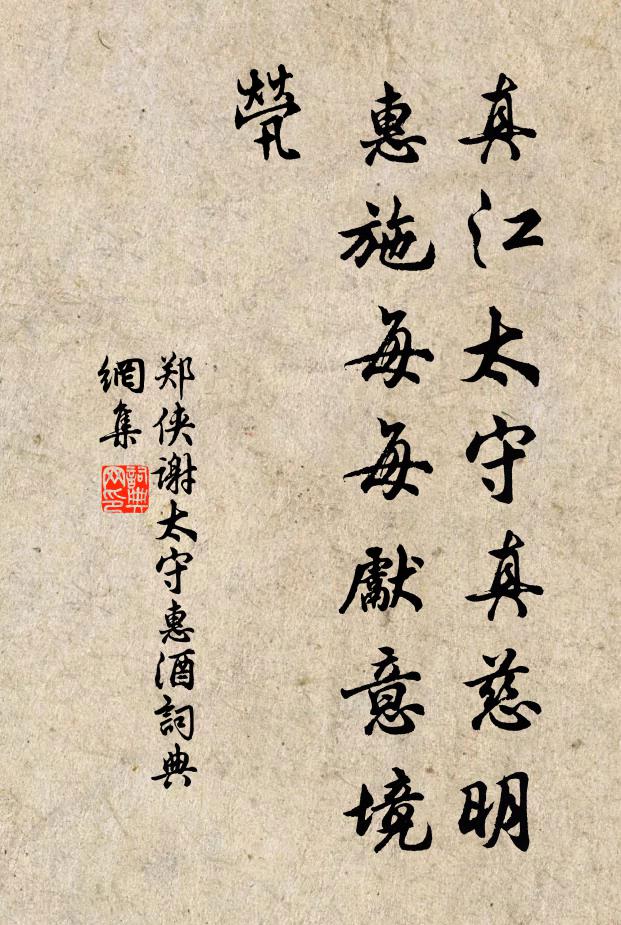 真江太守真慈明
惠施每每獻意境
煢
郑侠谢太守惠酒詞典
網集
詞典
网印